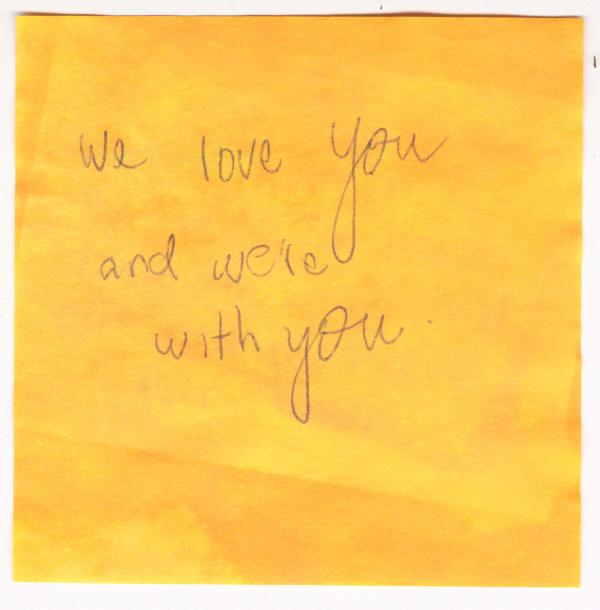 we love you
and we're
with you.